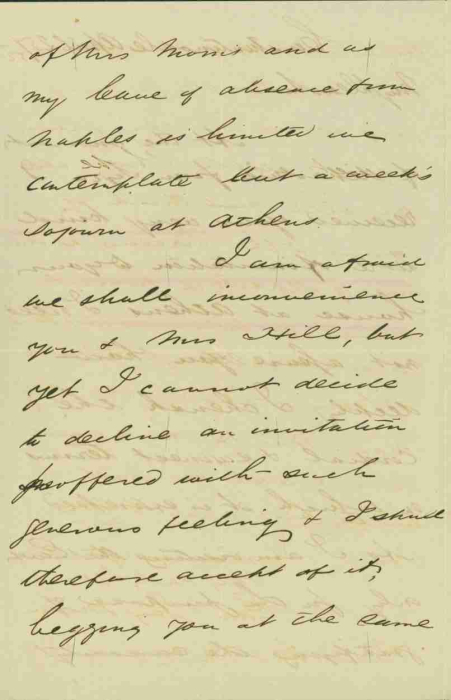 of Mrs Morris and as
my leave of absence from
Naples is limited we
contemplate but a week's
sojourn at Athens.
I am afraid
we shall inconvenience
you & Mrs Hill, but
yet I cannot decide
to decline an invitation
proffered with such
generous feeling & I shall
therefore accept of it,
begging you at the same